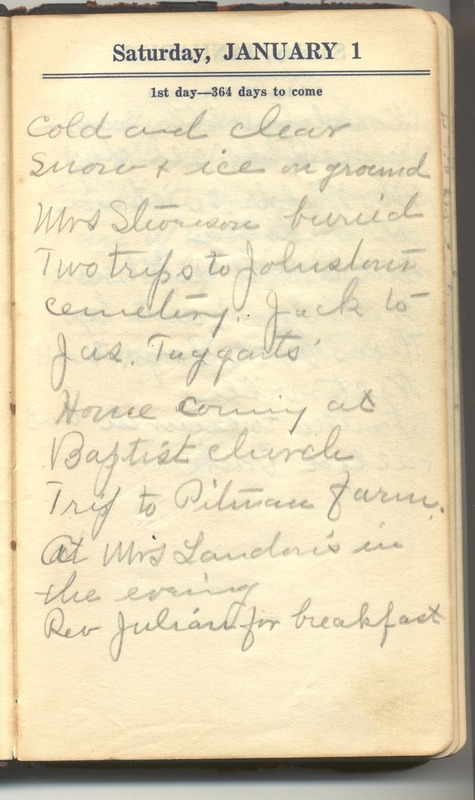 Saturday, JANUARY 1
1st day—364 days to come
Cold and clear
Snow + ice on ground
Mrs buried
Two trips to Johnston
cemetery. Jack to
Jas. Taggarts'
Home coming at
Baptist church
Trip to Pitman farm.
At Mrs Landon's in
the evening
Rev Julian for breakfast